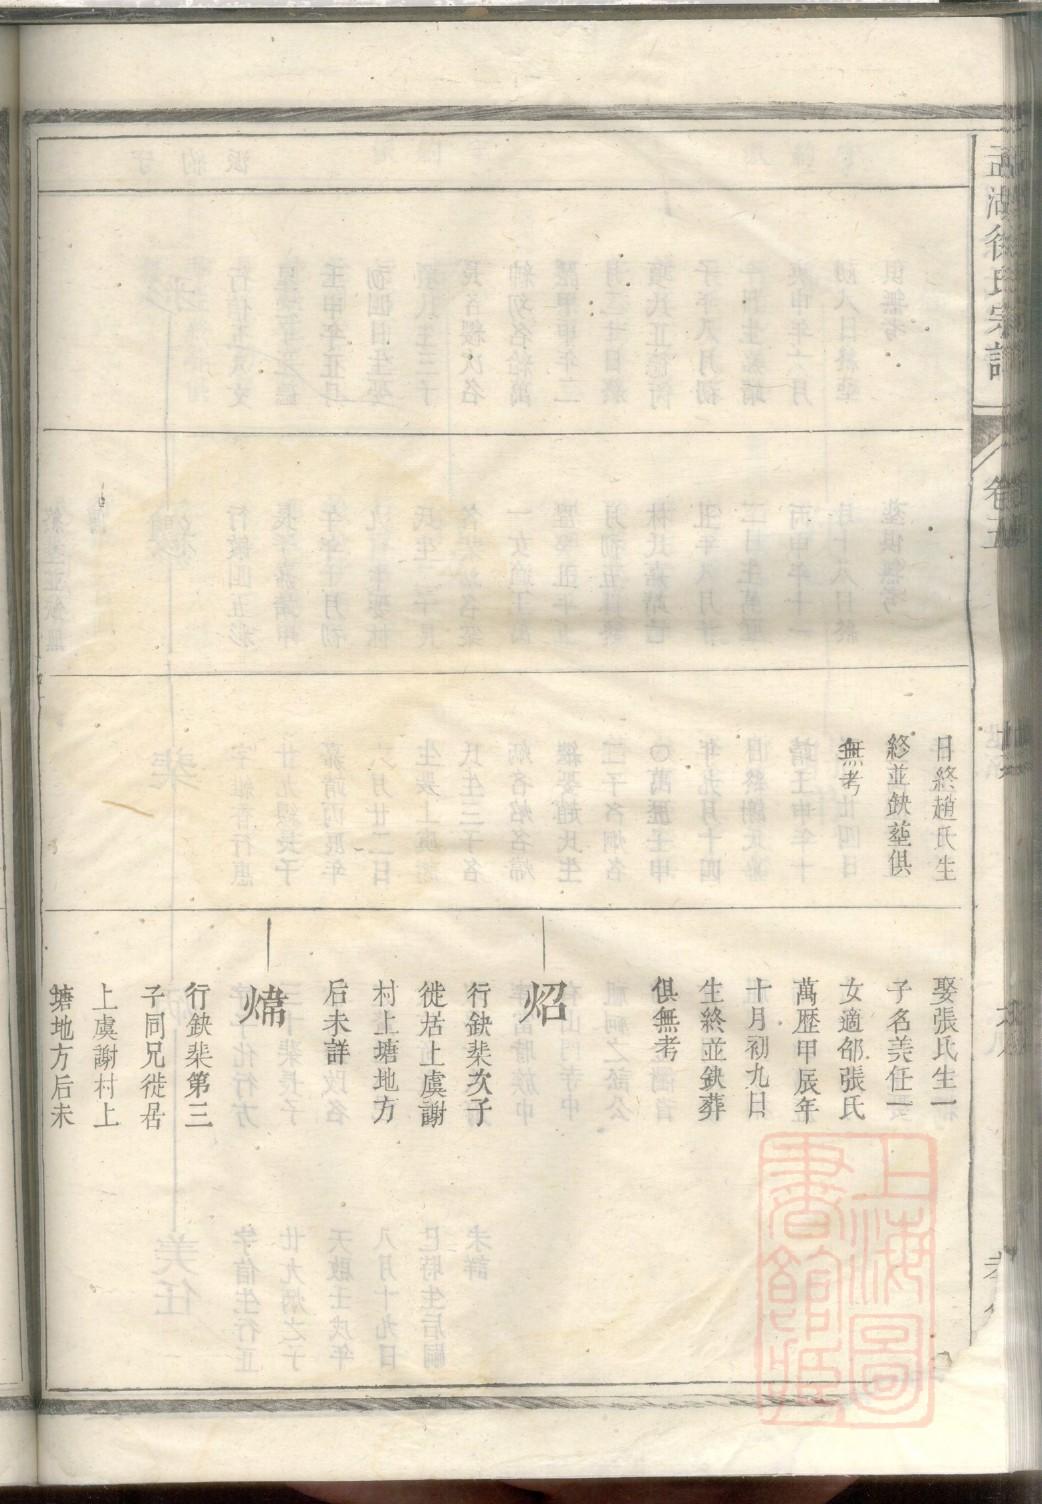 孟湖徐氏宗譜
卷五
日終趙氏生
終並鈌塟俱
無考
娶張氏生一
子名美任一
女適邰張氏
萬歷甲辰年
十月初九日
生終並鈌葬
俱無考
炤
行鈌棐次子
徙居上虞謝
村上塘地方
后未詳
煒
行鈌棐第三
子同兄徙居
上虞謝村上
塘地方后未
上海圖書館藏